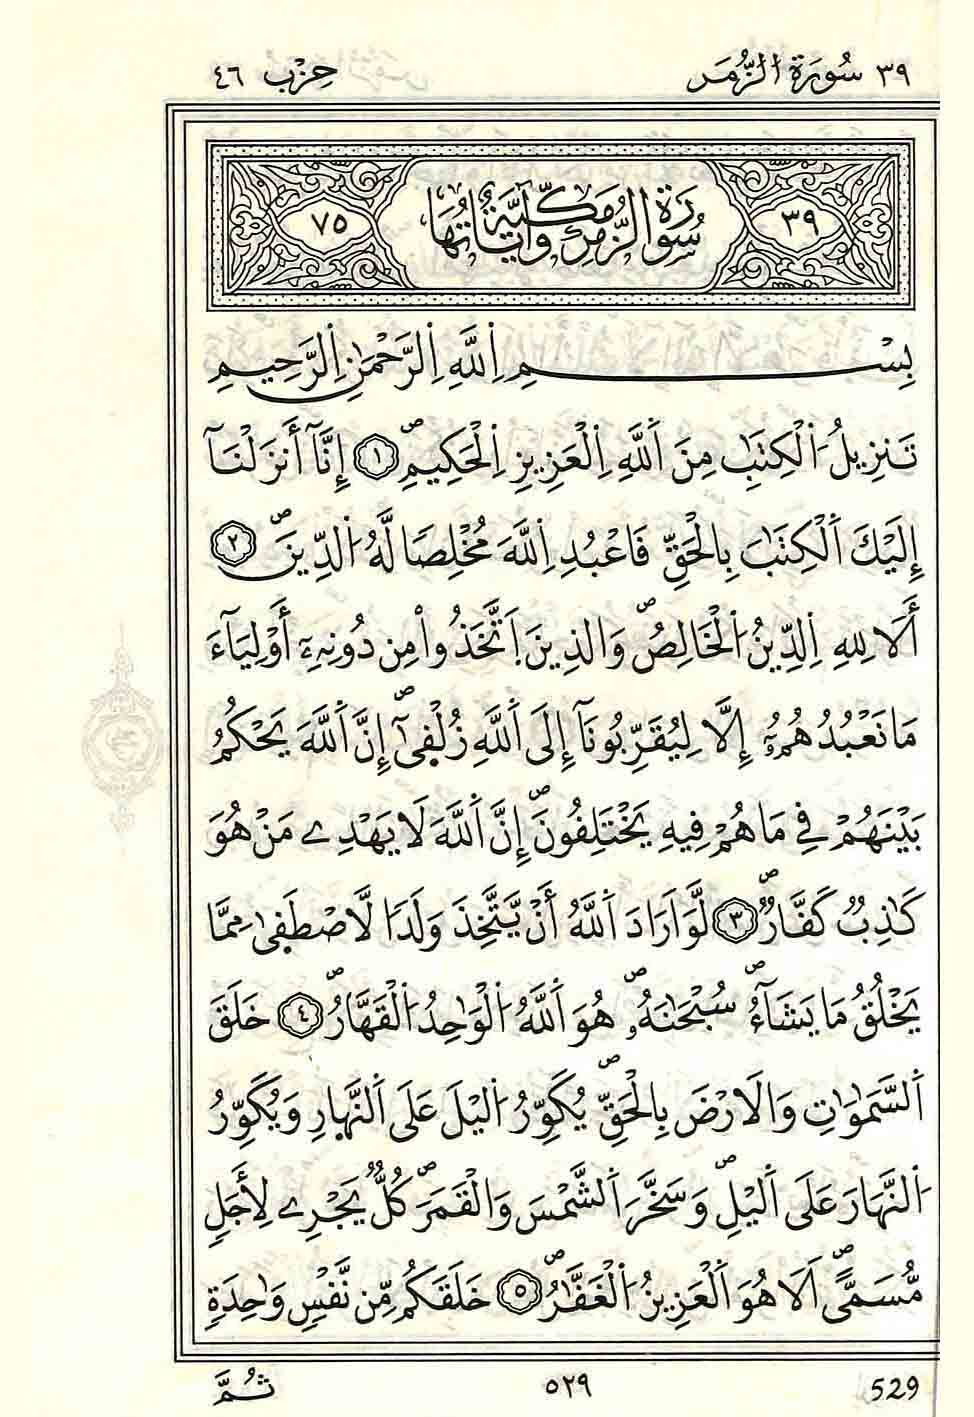 ٣٩ سُورَةُ الزُّمَر حِزْب ٤٦
٣٩ سُورَةُ الزُّمَرِ مَكِّيَّةٌ وَآيَاتُهَا ٧٥
بِسْمِ اِ۬للَّهِ اِ۬لرَّحْمَٰنِ اِ۬لرَّحِيمِ
تَنزِيلُ اُ۬لْكِتَٰبِ مِنَ اَ۬للَّهِ اِ۬لْعَزِيزِ اِ۬لْحَكِيمِۖ ١ إِنَّآ أَنزَلْنَآ
إِلَيْكَ اَ۬لْكِتَٰبَ بِالْحَقِّ فَاعْبُدِ اِ۬للَّهَ مُخْلِصاٗ لَّهُ اُ۬لدِّينَۖ ٢
أَلَا لِلهِ اِ۬لدِّينُ اُ۬لْخَالِصُۖ وَالذِينَ اَ۪تَّخَذُواْ مِن دُونِهِۦٓ أَوْلِيَآءَ
مَا نَعْبُدُهُمُۥٓ إِلَّا لِيُقَرِّبُونَآ إِلَى اَ۬للَّهِ زُلْف۪ىٰٓۖ إِنَّ اَ۬للَّهَ يَحْكُمُ
بَيْنَهُمْ فِے مَا هُمْ فِيهِ يَخْتَلِفُونَۖ إِنَّ اَ۬للَّهَ لَا يَهْدِے مَنْ هُوَ
كَٰذِبٞ كَفَّارٞۖ ٣ لَّوَ اَرَادَ اَ۬للَّهُ أَنْ يَّتَّخِذَ وَلَداٗ لَّاصْطَف۪ىٰ مِمَّا
يَخْلُقُ مَا يَشَآءُۖ سُبْحَٰنَهُۥۖ هُوَ اَ۬للَّهُ اُ۬لْوَٰحِدُ اُ۬لْقَهَّارُۖ ٤ خَلَقَ
اَ۬لسَّمَٰوَٰتِ وَالَارْضَ بِالْحَقِّۖ يُكَوِّرُ اُ۬ليْلَ عَلَى اَ۬لنَّه۪ارِ وَيُكَوِّرُ
اُ۬لنَّهَارَ عَلَى اَ۬ليْلِۖ وَسَخَّرَ اَ۬لشَّمْسَ وَالْقَمَرَۖ كُلّٞ يَجْرِے لِأَجَلٖ
مُّسَمّيًۖ اَلَا هُوَ اَ۬لْعَزِيزُ اُ۬لْغَفَّٰرُۖ ٥ خَلَقَكُم مِّن نَّفْسٖ وَٰحِدَةٖ
ثُمَّ ٥٢٩ 529